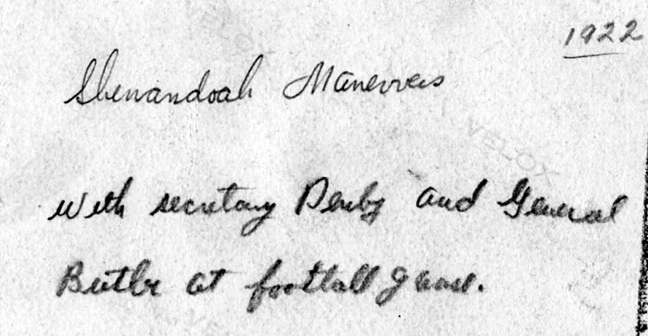 1922
Shenandoah Manevvers
with secretary Denby and General
Butler at football game.
VELOX
VELOX